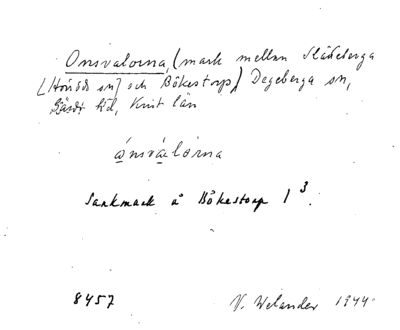 Onsvalorna, (mark mellan Släkeberga
[Hörröds sn] och Bökestorp) Degeberga sn,
Gärds hd, Krist län
ánsvàlorna
Sankmark å Bökestorp 1³.
8457 V. Welander 1944